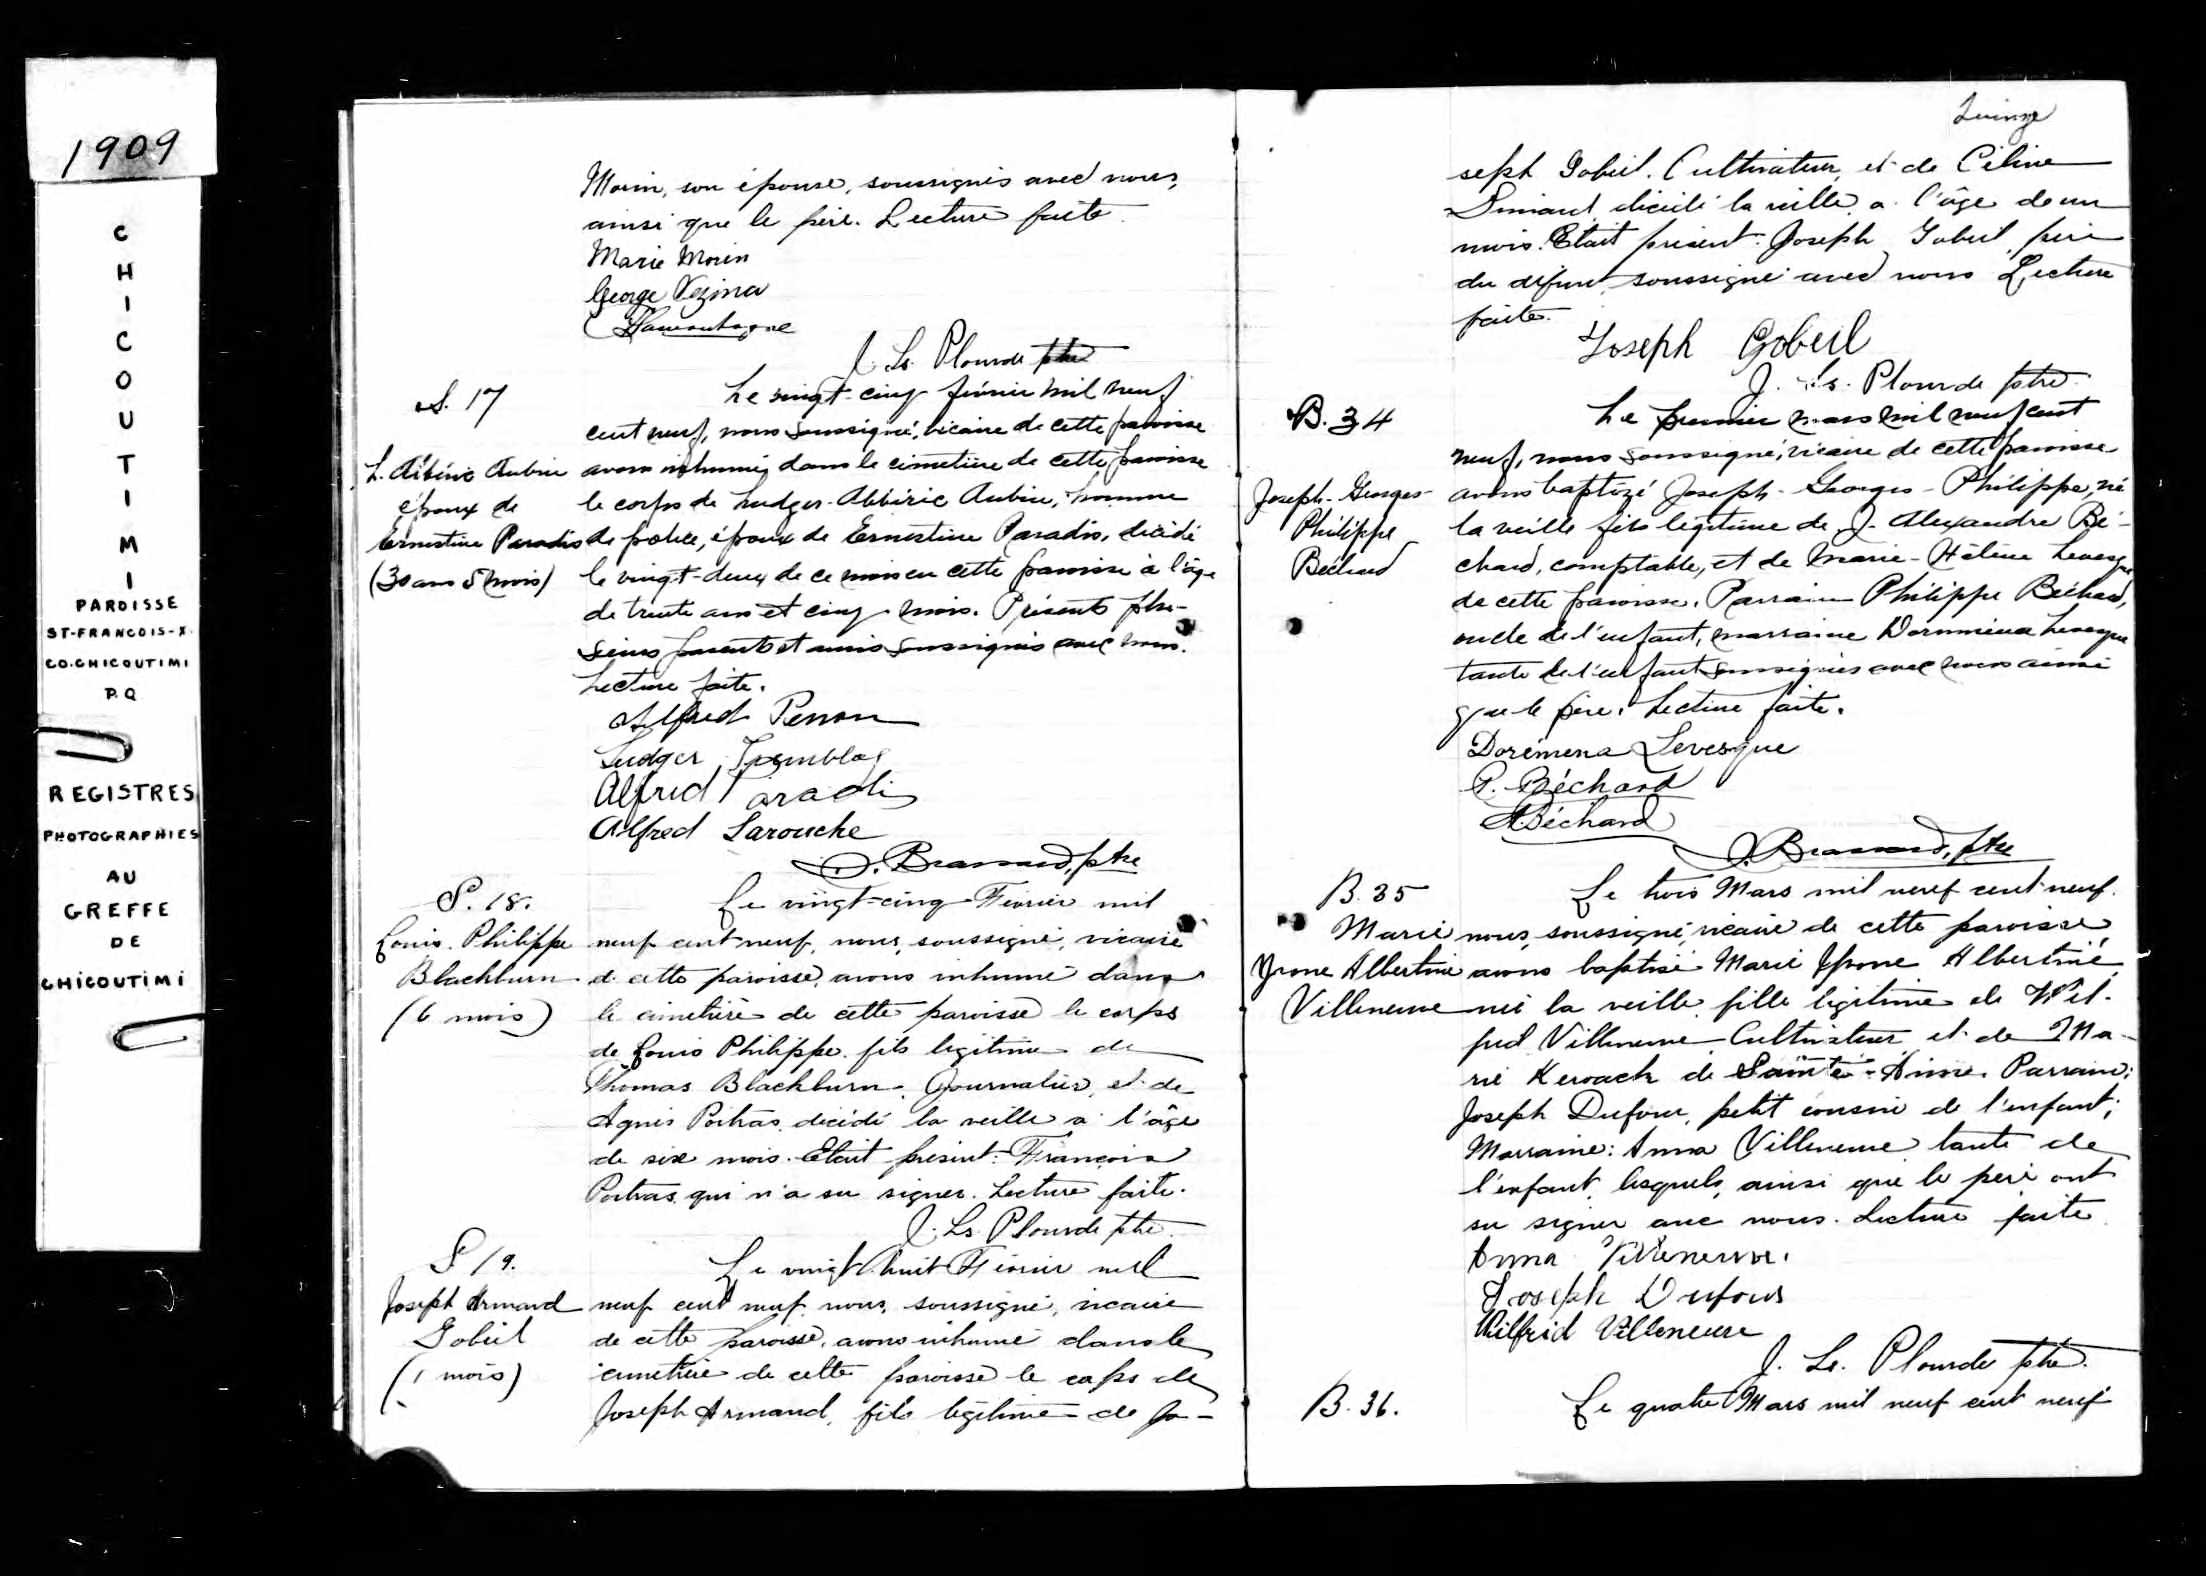 1909
CHICOUTIMI
PAROISSE
ST-FRANCOIS-X.
CO. CHICOUTIMI
P.Q
REGISTRES
PHOTOGRAPHIES
AU
GREFFE
DE
CHICOUTIMI
Morin, son épouse, soussignés avec nous,
ainsi que le père. Lecture faite.
Marie Morin
George Vezina
J. Ls. Plourde ptre
S. 17
L. Albéric Aubin
époux de
Ernestine Paradis
(30 ans 5 mois)
Le vingt-cinq février mil neuf
cent neuf, nous soussigné, vicaire de cette paroisse
avons inhumé dans le cimetière de cette paroisse
le corps de Ludger-Albéric Aubin, homme
de police, époux de Ernestine Paradis, décédé
le vingt-deux de ce mois en cette paroisse à l'âge
de trente ans et cinq mois. Présents plu-
sieurs parents et amis soussignés avec nous.
Lecture faite.
Alfred Perron
Ludger Tremblay
Alfred Paradis
Alfred Larouche
J. Brassard, ptre
S. 18.
Louis. Philippe
Blackburn
(6 mois)
Le vingt-cinq Février mil
neuf cent neuf, nous, soussigné, vicaire
de cette paroisse, avons inhumé dans
le cimetière de cette paroisse le corps
de Louis Philippe, fils légitime de
Thomas Blackburn, Journalier, et de
Agnès Poitras, décédé la veille à l'âge
de six mois. Etait présent: François
Poitras, qui n'a su signer. Lecture faite.
J. Ls. Plourde ptre.
S 19.
Joseph Armand
Gobeil
(1 mois)
Le vingt huit Février mil
neuf cent neuf, nous, soussigné, vicaire
de cette paroisse, avons inhumé dans le
cimetière de cette paroisse le corps de
Joseph Armand, fils légitime de Jo-
Quinze
seph Gobeil, Cultivateur, et de Céline
Simard, décédé la veille, a l'âge de un
mois. Etait présent: Joseph Gobeil, père
du défunt, soussigné avec nous Lecture
faite.
Joseph Gobeil
J. Ls. Plourde ptre.
B. 34
Joseph-Georges-
Philippe
Béchard
Le premier mars mil neuf cent
neuf, nous soussigné, vicaire de cette paroisse
avons baptizé Joseph-Georges-Philippe, né
la veille fils légitime de J. Alexandre Bé-
chard, comptable, et de Marie-Hélène Levesque
de cette paroisse. Parrain Philippe Béchard,
oncle de l'enfant, marraine Dorimène Levesque
tante de l'enfant soussignés avec nous ainsi
que le père. Lecture faite.
Dorémena Levesque
P. Béchard
A. Béchard
J. Brassard, ptre
B. 35
Marie
Yvone Albertine
Villeneuve
Le trois Mars mil neuf cent-neuf.
nous, soussigné, vicaire de cette paroisse
avons baptisé Marie Yvone Albertine,
née la veille, fille légitime de Wil-
frid Villeneuve Cultivateur et de Ma-
rie Keroack de Sainte-Anne. Parrain:
Joseph Dufour, petit cousin de l'enfant;
Marraine: Anna Villeneuve tante de
l'enfant, lesquels, ainsi que le père ont
su signer avec nous. Lecture faite.
Anna Villeneuve.
Joseph Dufour
Wilfrid Villeneuve
J. Ls. Plourde ptre.
B. 36.
Le quatre Mars mil neuf cent neuf